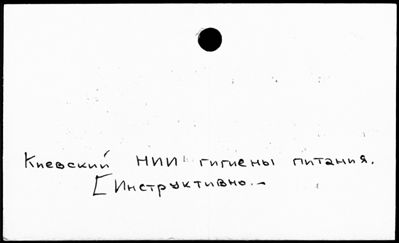 Киевский НИИ гигиены питания.
[Инструктивно.–